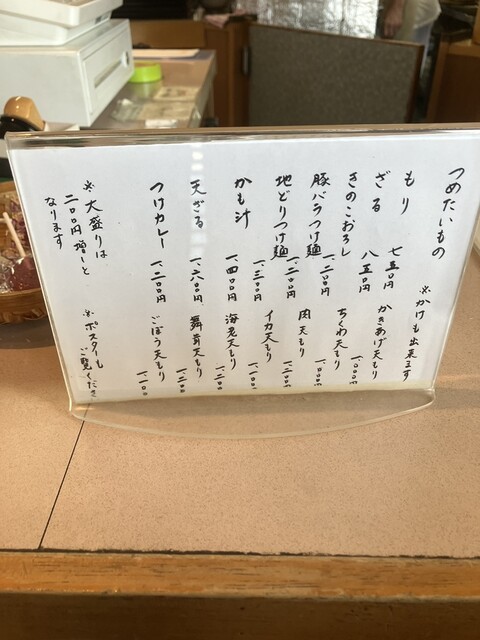 つめたいもの
※かけも出来ます
もり 七五〇円
ざる 八五〇円
きのこおろし 一、二〇〇円
豚バラつけ麺 一、二〇〇円
地どりつけ麺 一、三〇〇円
かも汁 一、四〇〇円
天ざる 一、六〇〇円
つけカレー 一、二〇〇円
かきあげ天もり 一、〇〇〇円
ちくわ天もり 一、〇〇〇円
肉天もり 一、二〇〇円
イカ天もり 一、一〇〇円
海老天もり 一、二〇〇円
舞茸天もり 一、二〇〇
ごぼう天もり 一、一〇〇
※大盛りは
二〇〇円増しと
なります
※ポスターも
ご覧ください